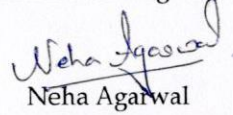 Neha Agarwal
Neha Agarwal